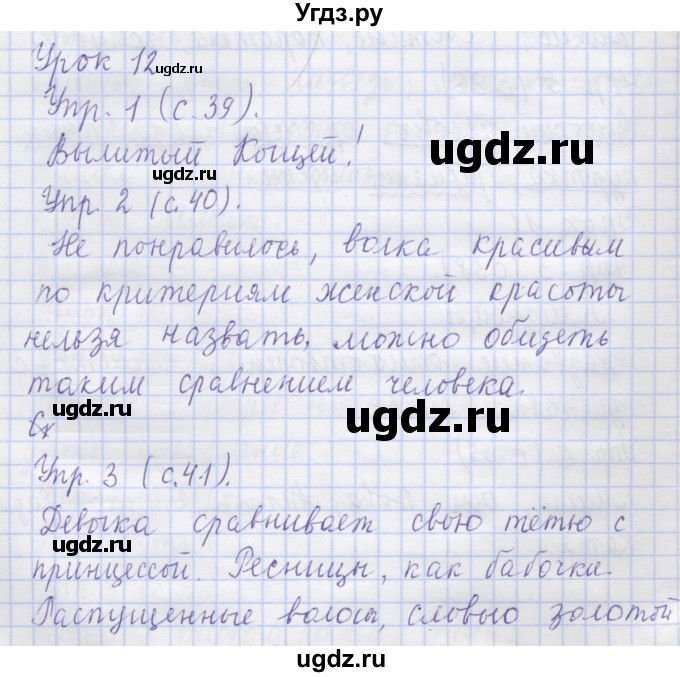 Угдз.ру
Урок 12
Упр. 1 (с. 39).
Вылитый Кощей!
Упр. 2 (с. 40).
Не понравилось, волка красивым
по критериям женской красоты
нельзя назвать, можно обидеть
таким сравнением человека.
Упр. 3 (с. 41).
Девочка сравнивает свою тётю с
принцессой. Ресницы, как бабочки.
Распущенные волосы, словно золотой
ugdz.ru
ugdz.ru
ugdz.ru
ugdz.ru
ugdz.ru
ugdz.ru
ugdz.ru
ugdz.ru